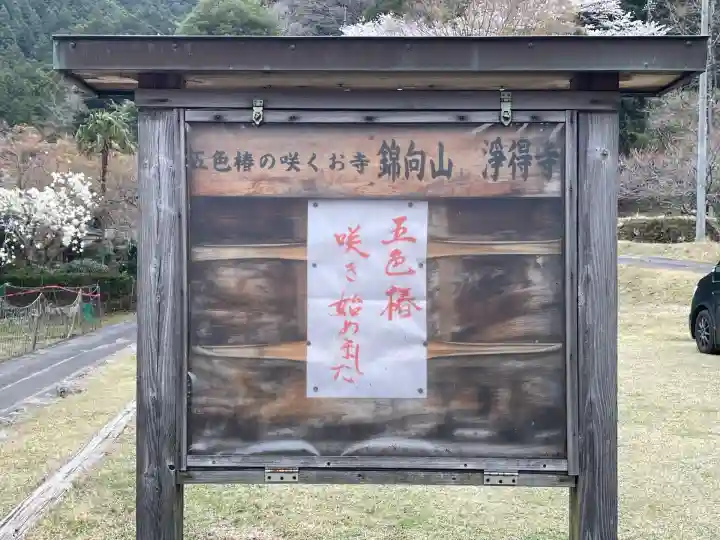 五色椿の咲くお寺 錦向山 淨得寺
五色椿
咲き始めました